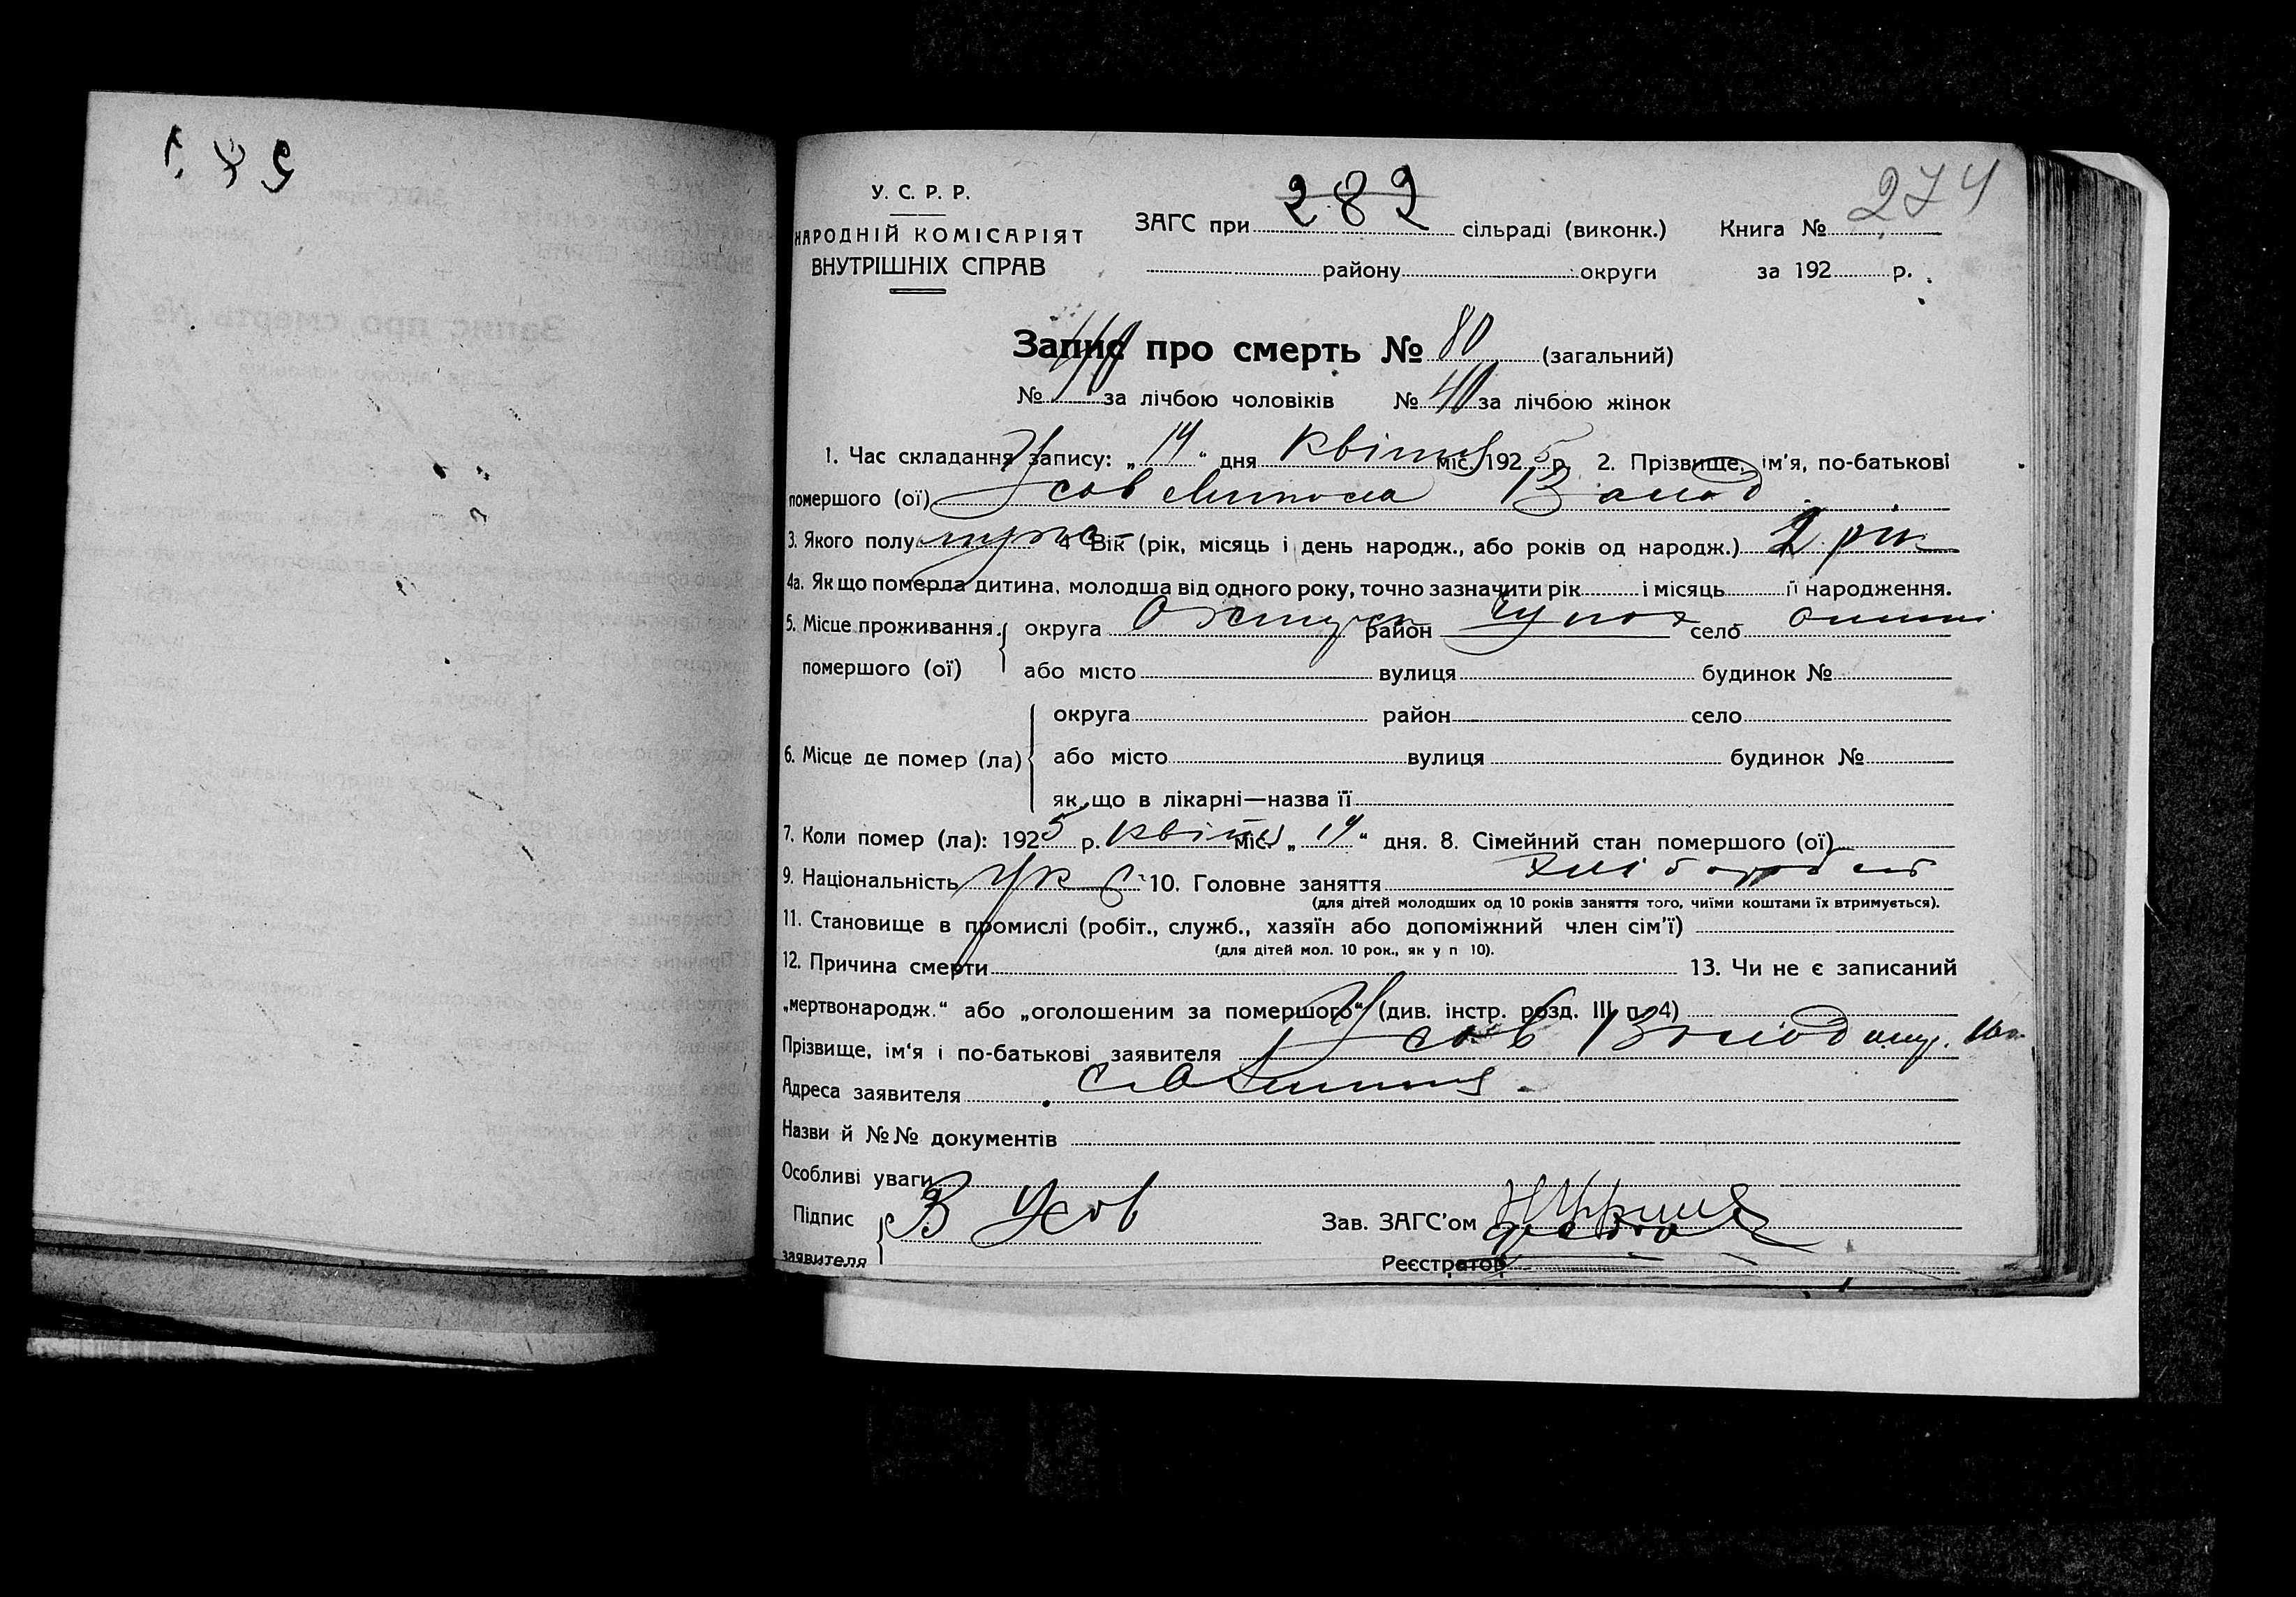 У. С. Р. Р.
НАРОДНІЙ КОМІСАРІЯТ
ВНУТРІШНІХ СПРАВ
ЗАГС при 282 сільраді (виконк.) Книга № 274
району округи за 192 р.
Запис про смерть № 80 (загальний)
№ за лічбою чоловіків № 40 за лічбою жінок
1. Час складання запису: „14“ дня Квітня міс. 1925 р. 2. Прізвище, ім'я, по-батькові
помершого (ої) Усов Волод
3. Якого полу 4 Вік (рік, місяць і день народж., або років од народж.) 2 рік
4а. Як що померла дитина, молодша від одного року, точно зазначити рік і місяць її народження.
5. Місце проживання округа район село
помершого (ої) або місто вулиця будинок №
округа район село
6. Місце де помер (ла) або місто вулиця будинок №
як що в лікарні—назва її
7. Коли помер (ла): 1925 р. квітня міс. „14“ дня. 8. Сімейний стан помершого (ої)
9. Національність Укр 10. Головне заняття хлібороб
(для дітей молодших од 10 років заняття того, чиїми коштами їх втримується).
11. Становище в промислі (робіт., служб., хазяїн або допоміжний член сім'ї)
(для дітей мол. 10 рок., як у п 10).
12. Причина смерти 13. Чи не є записаний
„мертвонародж.“ або „оголошеним за помершого“ (див. інстр. розд. III п. 4)
Прізвище, ім'я і по-батькові заявителя Усов Волод
Адреса заявителя
Назви й №№ документів
Особливі уваги
Підпис В Усов Зав. ЗАГС'ом
заявителя Реєстратор